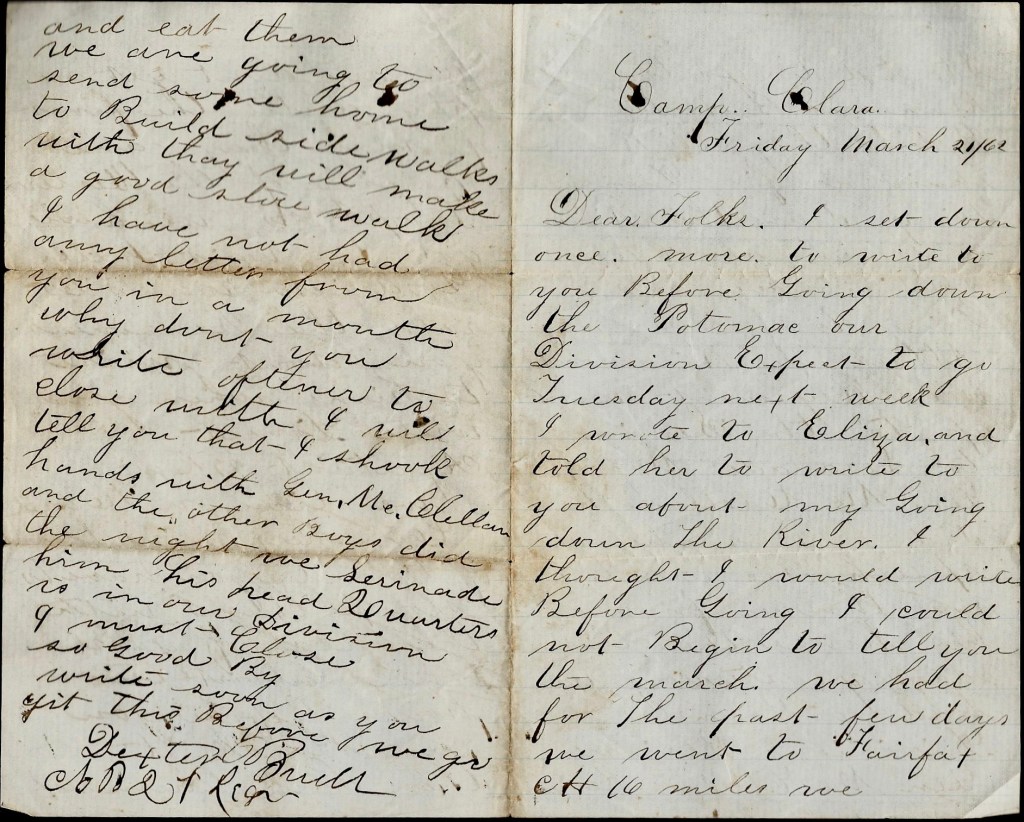 Camp. Clara.
Friday March 21/62
Dear. Folks. I set down
once. more. to write to
you Before Going down
the Potomac our
Division Expect to go
Tuesday next week
I wrote to Eliza, and
told her to write to
you about my Going
down The River. I
thought I would write
Before Going I could
not Begin to tell you
the march. we had
for The past few days
we went to Fairfax
CH 16 miles we
and eat them
we are going to
send some home
to Build side walks
with thay will make
a good stive walk
I have not had
any letter from
you in a month
why dont you
write oftener to
close with I will
tell you that I shook
hands with Gen, Mc. Clellan
and the other Boys did
the night we serinade
him his head Quarters
is in our Division
I must Close
so Good By
write soon as you
git this Before we go
Dexter Buell